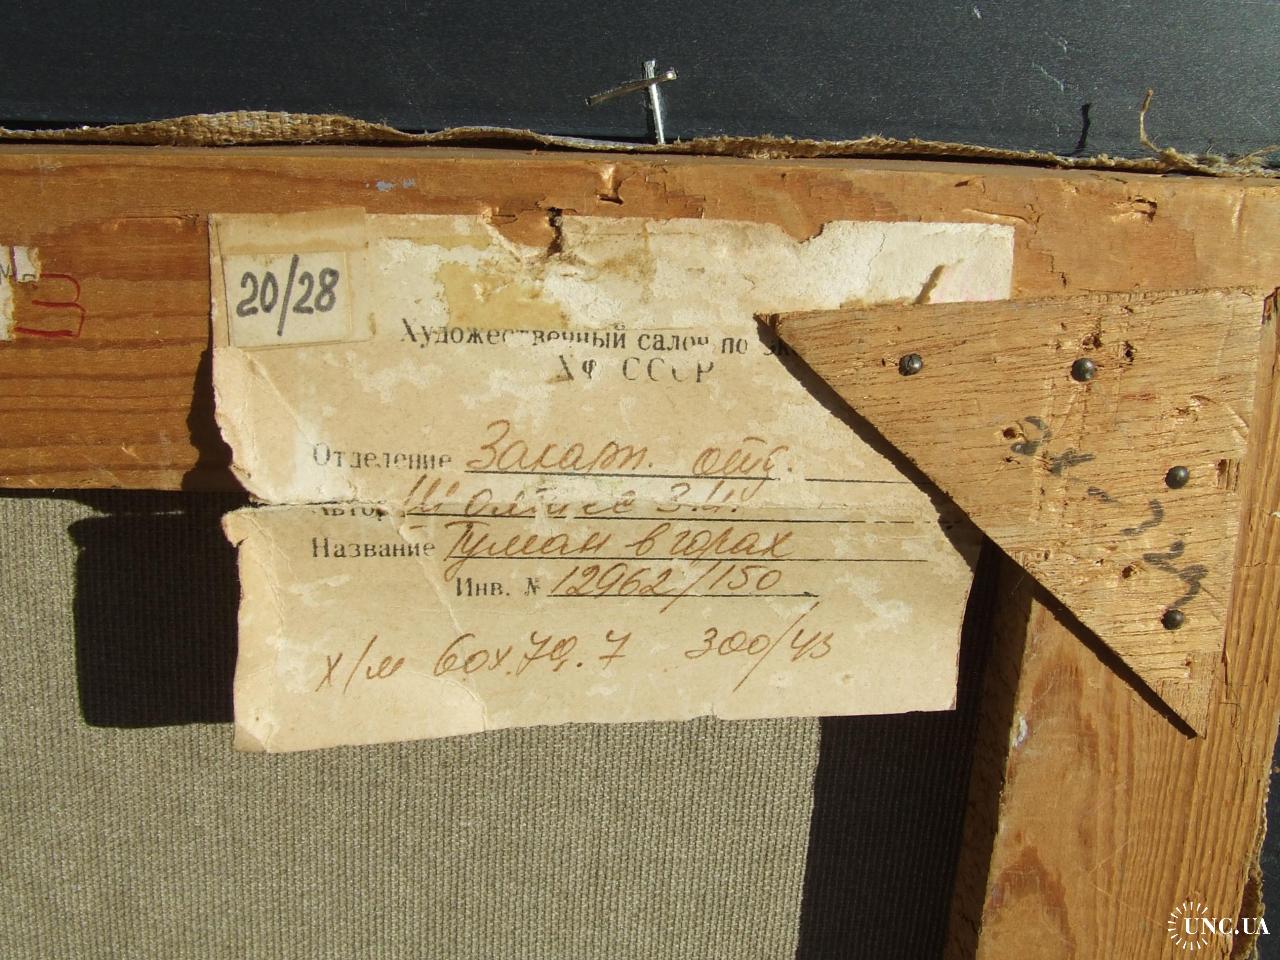 20/28
Художественный салон по эк
ХФ СССР
Отделение Закарп. отд.
Автор Шолтес З.И.
Название Туман в горах
Инв. № 12962/150
х/м 60х70,7 300/43
UNC.UA